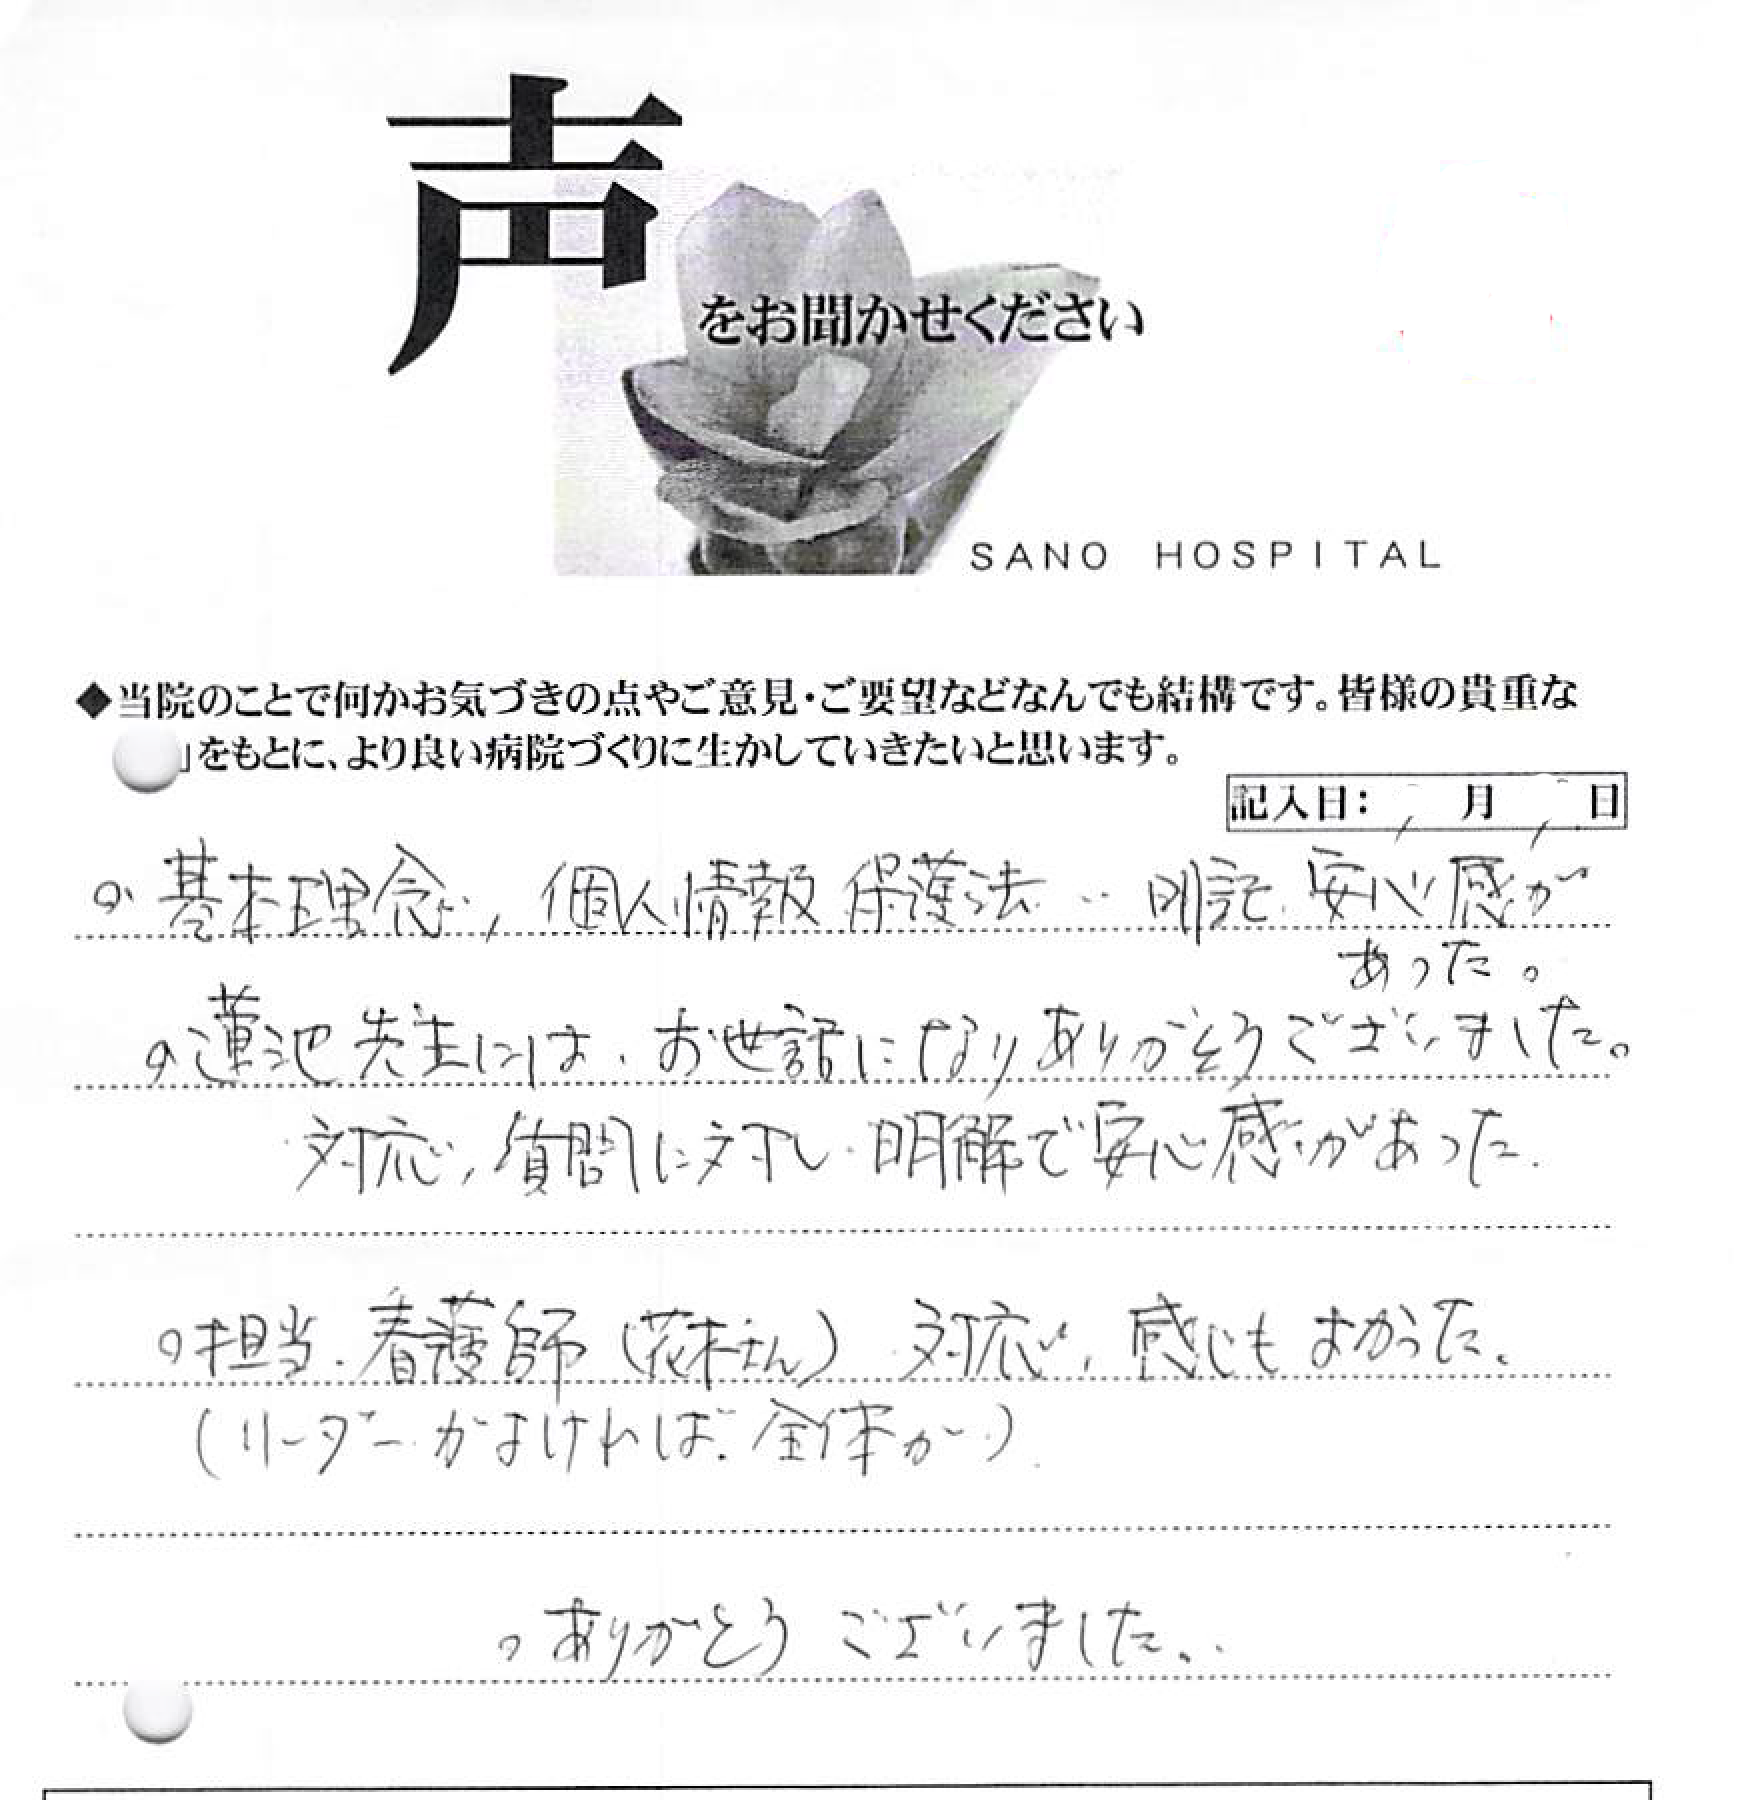 声
をお聞かせください
SANO HOSPITAL
◆当院のことで何かお気づきの点やご意見・ご要望などなんでも結構です。皆様の貴重な
」をもとに、より良い病院づくりに生かしていきたいと思います。
記入日： 月 日
○基本理念、個人情報保護法‥明記、安心感が
あった。
○蓮池先生には、お世話になりありがとうございました。
対応、質問に対し、明解で安心感があった。
○担当、看護師（花本さん）対応、感じもよかった。
（リーダーがよければ、全体が）
○ありがとうございました。